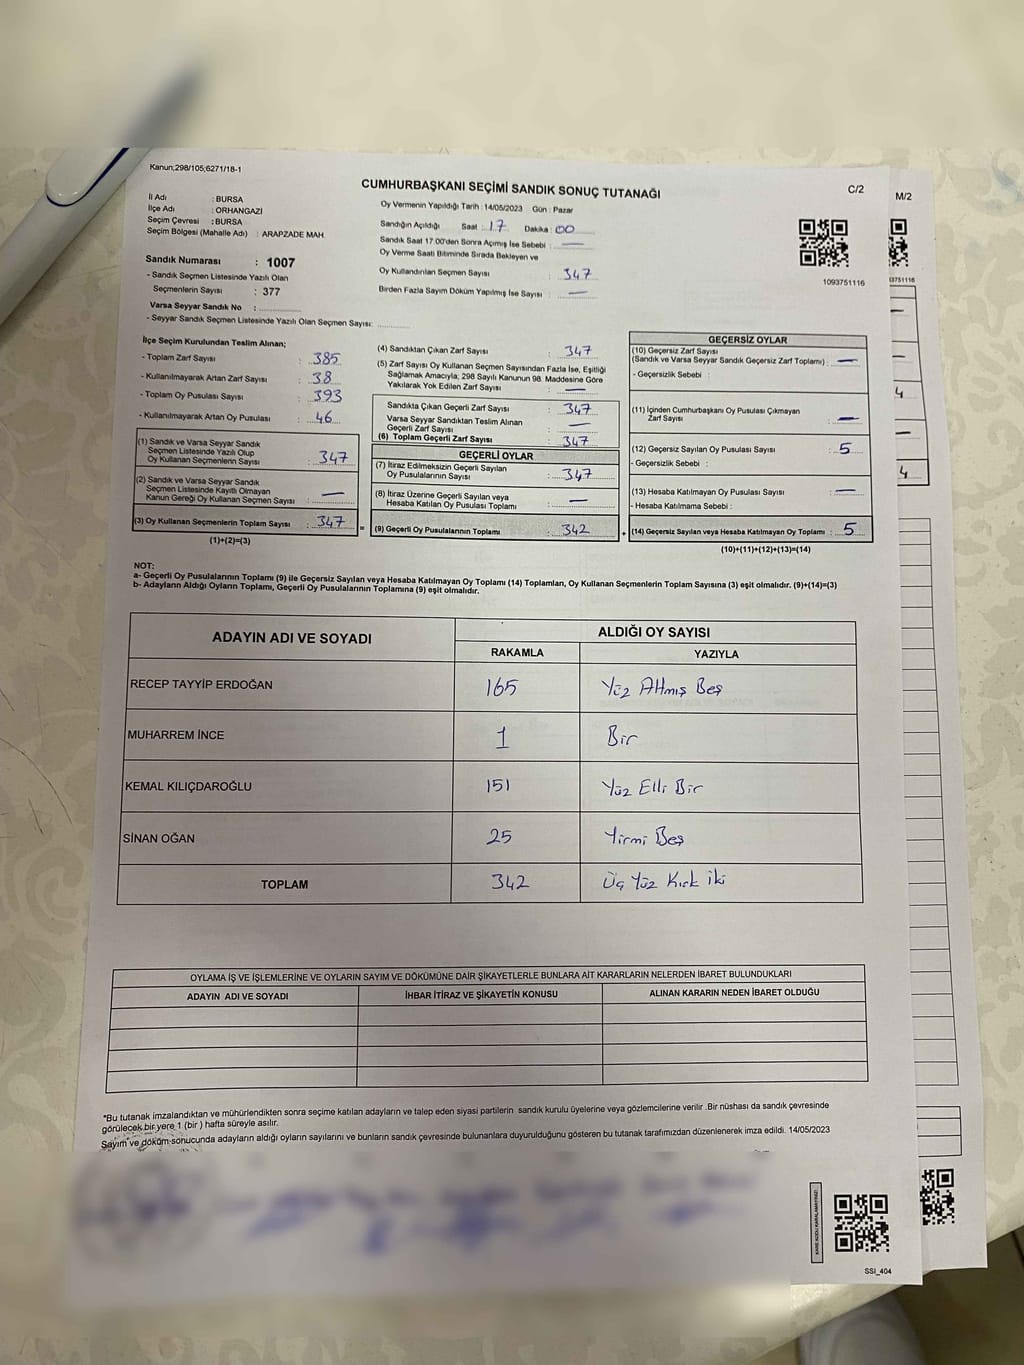 Kanun;298/105;6271/18-1
CUMHURBAŞKANI SEÇİMİ SANDIK SONUÇ TUTANAĞI
C/2
M/2
İl Adı : BURSA
İlçe Adı : ORHANGAZİ
Seçim Çevresi : BURSA
Seçim Bölgesi (Mahalle Adı) : ARAPZADE MAH.
Oy Vermenin Yapıldığı Tarih : 14/05/2023 Gün : Pazar
Sandığın Açıldığı Saat : 17 Dakika : 00
Sandık Saat 17.00'den Sonra Açılmış İse Sebebi : —
Oy Verme Saati Bitiminde Sırada Bekleyen ve
Oy Kullandırılan Seçmen Sayısı : 347
Birden Fazla Sayım Döküm Yapılmış İse Sayısı : —
1093751116
93751116
Sandık Numarası : 1007
- Sandık Seçmen Listesinde Yazılı Olan
Seçmenlerin Sayısı : 377
Varsa Seyyar Sandık No :
- Seyyar Sandık Seçmen Listesinde Yazılı Olan Seçmen Sayısı:
İlçe Seçim Kurulundan Teslim Alınan;
- Toplam Zarf Sayısı : 385
- Kullanılmayarak Artan Zarf Sayısı : 38
- Toplam Oy Pusulası Sayısı : 393
- Kullanılmayarak Artan Oy Pusulası : 46
(1) Sandık ve Varsa Seyyar Sandık
Seçmen Listesinde Yazılı Olup
Oy Kullanan Seçmenlerin Sayısı : 347
(2) Sandık ve Varsa Seyyar Sandık
Seçmen Listesinde Kaydı Olmayan
Kanun Gereği Oy Kullanan Seçmen Sayısı : —
(3) Oy Kullanan Seçmenlerin Toplam Sayısı : 347 =
(1)+(2)=(3)
(4) Sandıktan Çıkan Zarf Sayısı : 347
(5) Zarf Sayısı Oy Kullanan Seçmen Sayısından Fazla İse, Eşitliği
Sağlamak Amacıyla; 298 Sayılı Kanunun 98. Maddesine Göre
Yakılarak Yok Edilen Zarf Sayısı : —
Sandıkta Çıkan Geçerli Zarf Sayısı : 347
Varsa Seyyar Sandıktan Teslim Alınan
Geçerli Zarf Sayısı : —
(6) Toplam Geçerli Zarf Sayısı : 347
GEÇERLİ OYLAR
(7) İtiraz Edilmeksizin Geçerli Sayılan
Oy Pusulalarının Sayısı : 347
(8) İtiraz Üzerine Geçerli Sayılan veya
Hesaba Katılan Oy Pusulası Toplamı : —
(9) Geçerli Oy Pusulalarının Toplamı : 342 +
GEÇERSİZ OYLAR
(10) Geçersiz Zarf Sayısı
(Sandık ve Varsa Seyyar Sandık Geçersiz Zarf Toplamı) : —
- Geçersizlik Sebebi :
(11) İçinden Cumhurbaşkanı Oy Pusulası Çıkmayan
Zarf Sayısı : —
(12) Geçersiz Sayılan Oy Pusulası Sayısı : 5
- Geçersizlik Sebebi :
(13) Hesaba Katılmayan Oy Pusulası Sayısı : —
- Hesaba Katılmama Sebebi :
(14) Geçersiz Sayılan veya Hesaba Katılmayan Oy Toplamı : 5
(10)+(11)+(12)+(13)=(14)
4
4
NOT:
a- Geçerli Oy Pusulalarının Toplamı (9) ile Geçersiz Sayılan veya Hesaba Katılmayan Oy Toplamı (14) Toplamları, Oy Kullanan Seçmenlerin Toplam Sayısına (3) eşit olmalıdır. (9)+(14)=(3)
b- Adayların Aldığı Oyların Toplamı, Geçerli Oy Pusulalarının Toplamına (9) eşit olmalıdır.
ADAYIN ADI VE SOYADI
ALDIĞI OY SAYISI
RAKAMLA YAZIYLA
RECEP TAYYİP ERDOĞAN 165 Yüz Altmış Beş
MUHARREM İNCE 1 Bir
KEMAL KILIÇDAROĞLU 151 Yüz Elli Bir
SİNAN OĞAN 25 Yirmi Beş
TOPLAM 342 Üç Yüz Kırk İki
OYLAMA İŞ VE İŞLEMLERİNE VE OYLARIN SAYIM VE DÖKÜMÜNE DAİR ŞİKAYETLERLE BUNLARA AİT KARARLARIN NELERDEN İBARET BULUNDUKLARI
ADAYIN ADI VE SOYADI İHBAR İTİRAZ VE ŞİKAYETİN KONUSU ALINAN KARARIN NEDEN İBARET OLDUĞU
*Bu tutanak imzalandıktan ve mühürlendikten sonra seçime katılan adayların ve talep eden siyasi partilerin sandık kurulu üyelerine veya gözlemcilerine verilir .Bir nüshası da sandık çevresinde
görülecek bir yere 1 (bir ) hafta süreyle asılır.
Sayım ve döküm sonucunda adayların aldığı oyların sayılarını ve bunların sandık çevresinde bulunanlara duyurulduğunu gösteren bu tutanak tarafımızdan düzenlenerek imza edildi. 14/05/2023
KARE KODU KARALAMAYINIZ!
SSI_404